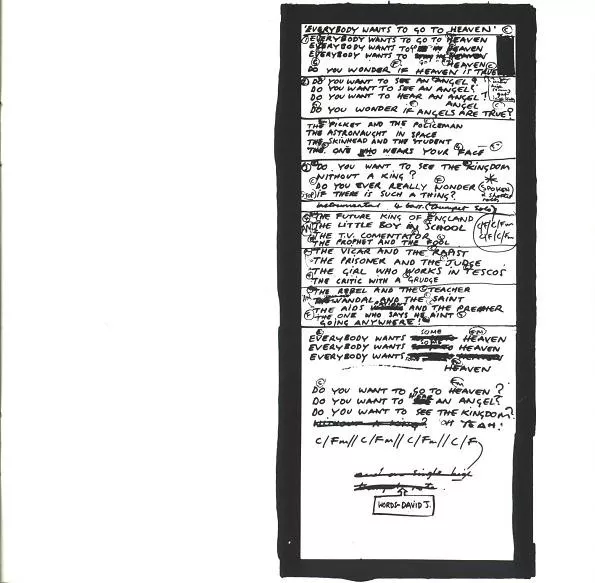 'EVERYBODY WANTS TO GO TO HEAVEN' C
1 EVERYBODY WANTS TO GO TO HEAVEN
EVERYBODY WANTS TO GO HEAVEN
EVERYBODY WANTS TO HEAVEN
HEAVEN
DO YOU WONDER IF HEAVEN IS TRUE
2 DO YOU WANT TO SEE AN ANGEL?
DO YOU WANT TO SEE AN ANGEL?
DO YOU WANT TO HEAR AN ANGEL?
ANGEL
DO YOU WONDER IF ANGELS ARE TRUE?
THE PICKET AND THE POLICEMAN
THE ASTRONAUGHT IN SPACE
THE SKINHEAD AND THE STUDENT
THE ONE WHO WEARS YOUR FACE
DO YOU WANT TO SEE THE KINGDOM
WITHOUT A KING?
DO YOU EVER REALLY WONDER (SPOKEN
IF THERE IS SUCH A THING?
instrumental 4 bars. (trumpet solo)
THE FUTURE KING OF ENGLAND
THE LITTLE BOY IN SCHOOL C/F/C/Fm
THE T.V. COMENTATOR C/F/C/Fm
THE PROPHET AND THE FOOL
THE VICAR AND THE RAPIST
THE PRISONER AND THE JUDGE
THE GIRL WHO WORKS IN TESCOS
THE CRITIC WITH A GRUDGE
THE REBEL AND THE TEACHER
THE VANDAL AND THE SAINT
THE AIDS AND THE PREACHER
THE ONE WHO SAYS HE AINT
GOING ANYWHERE!
SOME FM
EVERYBODY WANTS HEAVEN
EVERYBODY WANTS SOME HEAVEN
EVERYBODY WANTS HEAVEN
HEAVEN
C FM
DO YOU WANT TO GO TO HEAVEN?
DO YOU WANT TO AN ANGEL?
DO YOU WANT TO SEE THE KINGDOM?
WITHOUT A KING? OH YEAH!
C/Fm// C/Fm// C/Fm// C/F
end on single high
WORDS-DAVID J.